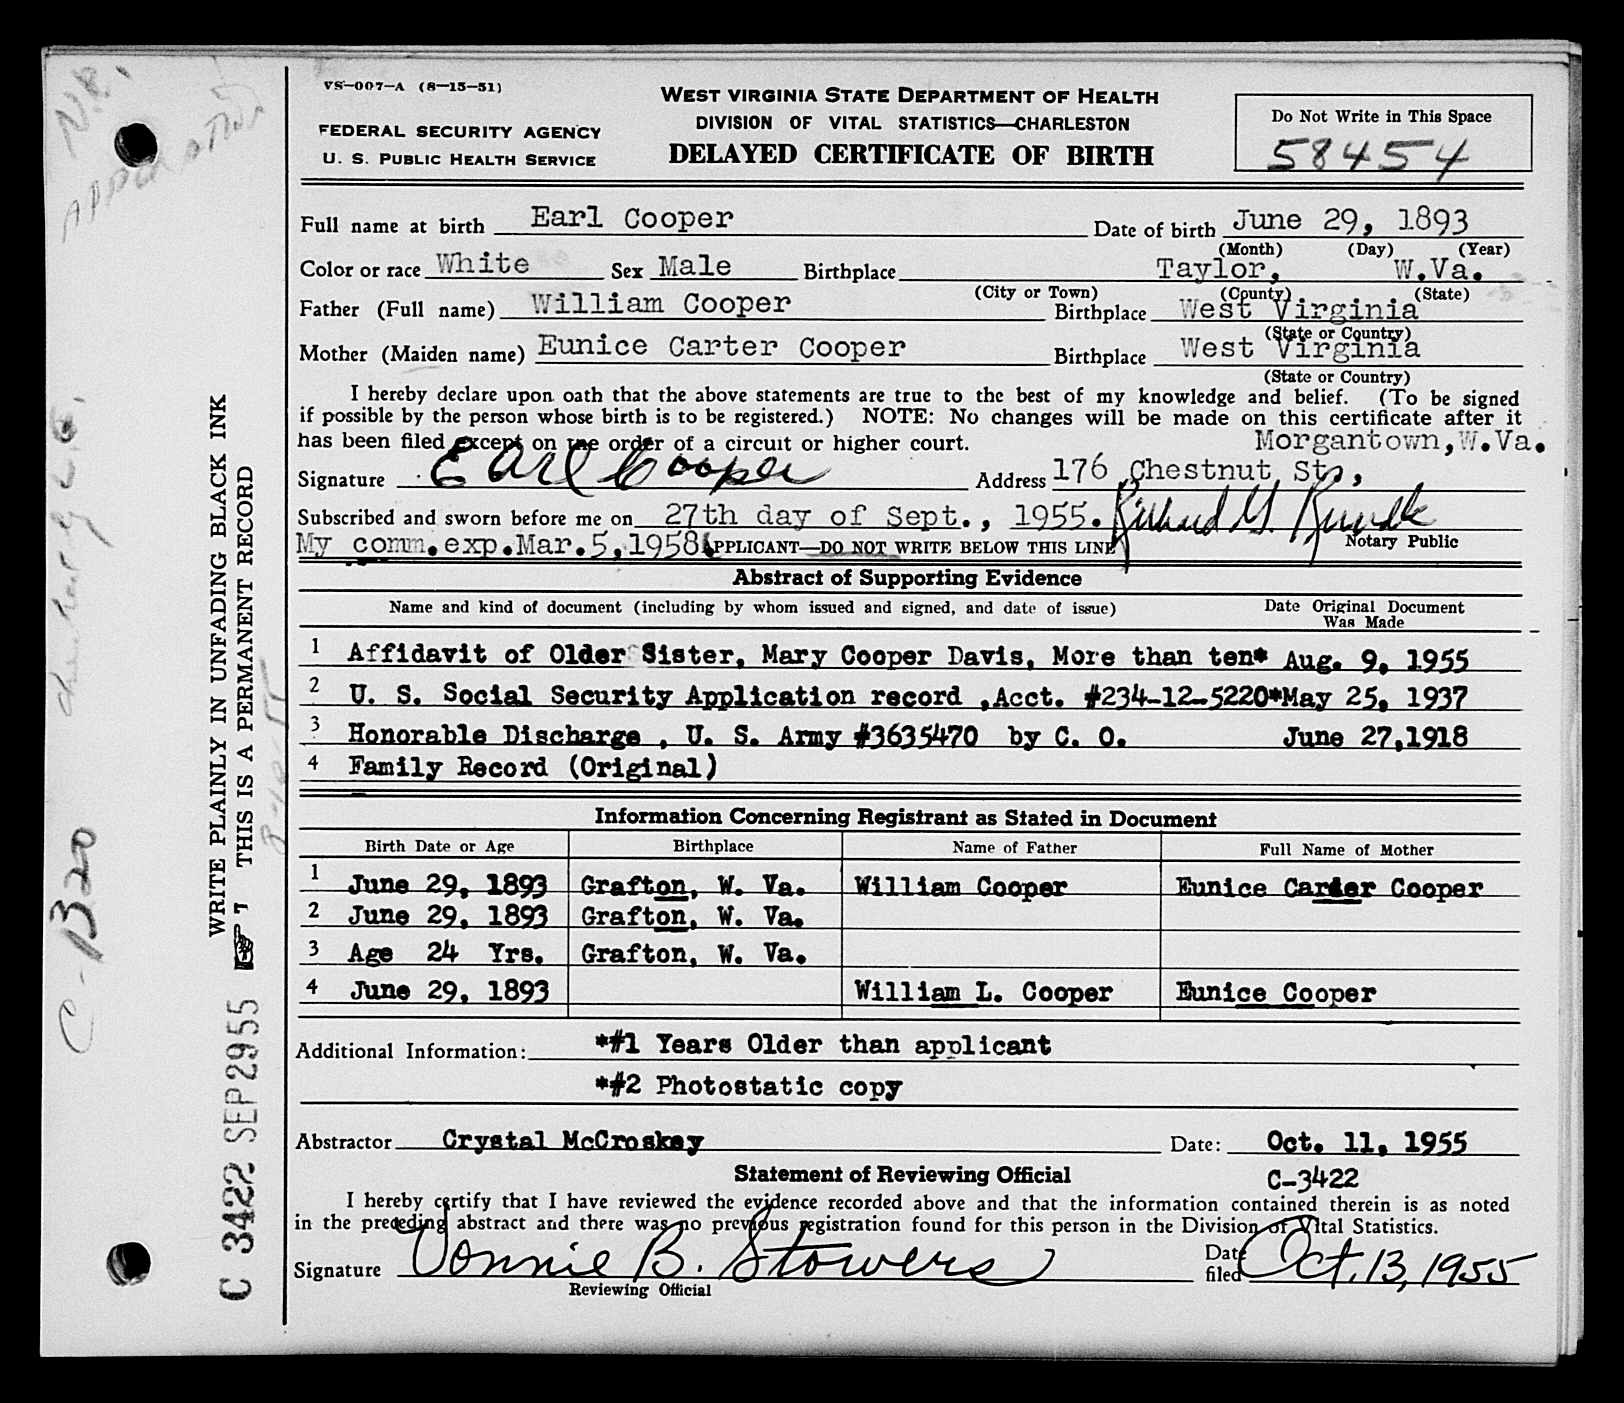 VS—007—A (8—15—51)
FEDERAL SECURITY AGENCY
U. S. PUBLIC HEALTH SERVICE
WEST VIRGINIA STATE DEPARTMENT OF HEALTH
DIVISION OF VITAL STATISTICS—CHARLESTON
DELAYED CERTIFICATE OF BIRTH
Do Not Write in This Space
58454
Full name at birth Earl Cooper Date of birth June 29, 1893
(Month) (Day) (Year)
Color or race White Sex Male Birthplace Taylor, W.Va.
(City or Town) (County) (State)
Father (Full name) William Cooper Birthplace West Virginia
(State or Country)
Mother (Maiden name) Eunice Carter Cooper Birthplace West Virginia
(State or Country)
I hereby declare upon oath that the above statements are true to the best of my knowledge and belief. (To be signed
if possible by the person whose birth is to be registered.) NOTE: No changes will be made on this certificate after it
has been filed except on the order of a circuit or higher court. Morgantown, W.Va.
Signature Earl Cooper Address 176 Chestnut St.,
Subscribed and sworn before me on 27th day of Sept., 1955.
My comm.exp.Mar.5,1958 APPLICANT—DO NOT WRITE BELOW THIS LINE Notary Public
Abstract of Supporting Evidence
Name and kind of document (including by whom issued and signed, and date of issue) Date Original Document
Was Made
1 Affidavit of Older Sister, Mary Cooper Davis, More than ten* Aug. 9, 1955
2 U. S. Social Security Application record ,Acct. #234-12-5220*May 25, 1937
3 Honorable Discharge , U. S. Army #3635470 by C. O. June 27,1918
4 Family Record (Original)
Information Concerning Registrant as Stated in Document
Birth Date or Age Birthplace Name of Father Full Name of Mother
1 June 29, 1893 Grafton, W. Va. William Cooper Eunice Carder Cooper
2 June 29, 1893 Grafton, W. Va.
3 Age 24 Yrs. Grafton, W. Va.
4 June 29, 1893 William L. Cooper Eunice Cooper
Additional Information: *#1 Years Older than applicant
*#2 Photostatic copy
Abstractor Crystal McCroskey Date: Oct. 11, 1955
Statement of Reviewing Official C-3422
I hereby certify that I have reviewed the evidence recorded above and that the information contained therein is as noted
in the preceding abstract and there was no previous registration found for this person in the Division of Vital Statistics.
Signature Vonnie B. Stowers Date filed Oct. 13, 1955
Reviewing Official
WRITE PLAINLY IN UNFADING BLACK INK
THIS IS A PERMANENT RECORD
C 3422 SEP 29 55
C-B20